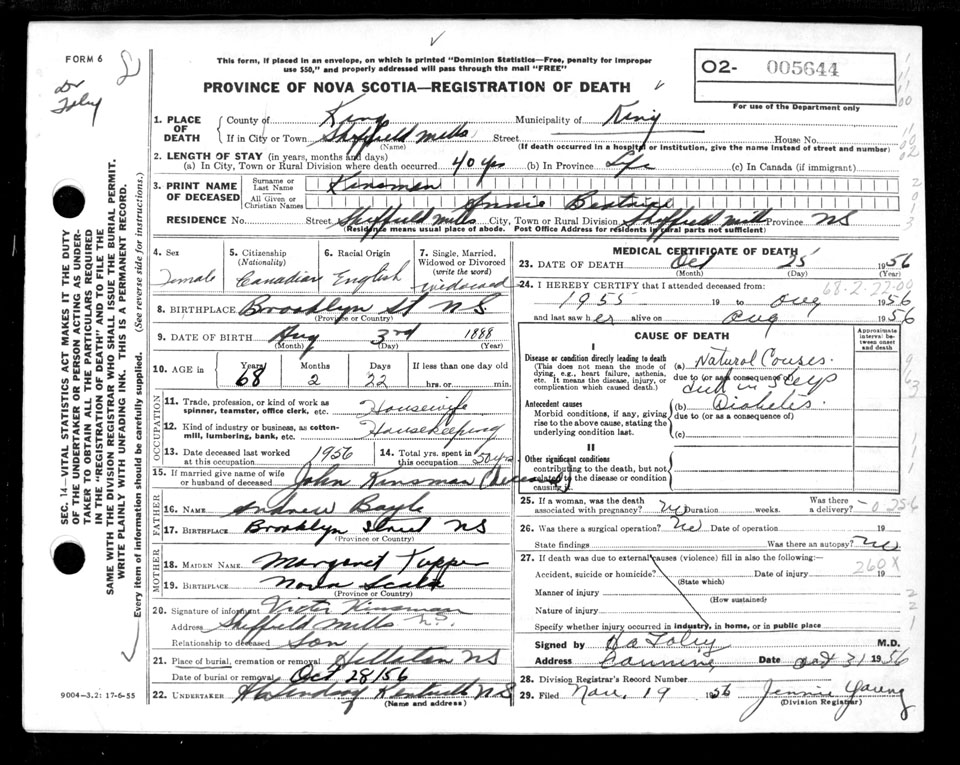 FORM 6
Dr Foley
This form, if placed in an envelope, on which is printed "Dominion Statistics—Free, penalty for improper
use $50," and properly addressed will pass through the mail "FREE"
PROVINCE OF NOVA SCOTIA—REGISTRATION OF DEATH
02- 005644
For use of the Department only
1. PLACE OF DEATH
County of Kings Municipality of King
If in City or Town Sheffield Mills Street House No.
(Name) (If death occurred in a hospital or institution, give the name instead of street and number)
2. LENGTH OF STAY (in years, months and days)
(a) In City, Town or Rural Division where death occurred 40 yrs (b) In Province Life (c) In Canada (if immigrant)
3. PRINT NAME OF DECEASED
Surname or Last Name Kinsman
All Given or Christian Names Annie Beatrice
RESIDENCE No. Street Sheffield Mills City, Town or Rural Division Sheffield Mills Province NS
(Residence means usual place of abode. Post Office Address for residents in rural parts not sufficient)
4. Sex Female
5. Citizenship (Nationality) Canadian
6. Racial Origin English
7. Single, Married, Widowed or Divorced (write the word) Widowed
8. BIRTHPLACE Brooklyn St NS
(Province or Country)
9. DATE OF BIRTH Aug 3rd 1888
(Month) (Day) (Year)
10. AGE in Years 68 Months 2 Days 22 If less than one day old hrs. or min.
OCCUPATION
11. Trade, profession, or kind of work as spinner, teamster, office clerk, etc. Housewife
12. Kind of industry or business, as cotton-mill, lumbering, bank, etc. Housekeeping
13. Date deceased last worked at this occupation 1956
14. Total yrs. spent in this occupation 50 yrs
15. If married give name of wife or husband of deceased John Kinsman (deceased)
FATHER
16. NAME Andrew Bayle
17. BIRTHPLACE Brooklyn Street NS
(Province or Country)
MOTHER
18. MAIDEN NAME Margaret Tupper
19. BIRTHPLACE Nova Scotia
(Province or Country)
20. Signature of informant Victor Kinsman
Address Sheffield Mills N.S.
Relationship to deceased Son
21. Place of burial, cremation or removal Hillaton NS
Date of burial or removal Oct 28/56
22. UNDERTAKER Kentville N.S
(Name and address)
MEDICAL CERTIFICATE OF DEATH
23. DATE OF DEATH Oct 25 1956
(Month) (Day) (Year)
68-2-22-00
24. I HEREBY CERTIFY that I attended deceased from:
1955 19 to Aug 1956
and last saw her alive on Aug 1956
CAUSE OF DEATH
Approximate interval between onset and death
I
Disease or condition directly leading to death
(This does not mean the mode of dying, e.g., heart failure, asthenia, etc. It means the disease, injury, or complication which caused death.)
(a) Natural Causes.
due to (or as a consequence of)
died in sleep
Antecedent causes
Morbid conditions, if any, giving rise to the above cause, stating the underlying condition last.
(b) Diabetes.
due to (or as a consequence of)
(c)
II
Other significant conditions
contributing to the death, but not related to the disease or condition causing it.
25. If a woman, was the death associated with pregnancy? No Duration weeks. Was there a delivery?
26. Was there surgical operation? No Date of operation 19
State findings Was there an autopsy? No
27. If death was due to external causes (violence) fill in also the following:—
260X
Accident, suicide or homicide? Date of injury 19
(State which)
Manner of injury
(How sustained)
Nature of injury
Specify whether injury occurred in industry, in home, or in public place
Signed by Foley M.D.
Address Canning Date Oct 31 1956
28. Division Registrar's Record Number
29. Filed Nov. 19 1956 Jennie Young
(Division Registrar)
SEC. 14—VITAL STATISTICS ACT MAKES IT THE DUTY
OF THE UNDERTAKER OR PERSON ACTING AS UNDER-
TAKER TO OBTAIN ALL THE PARTICULARS REQUIRED
IN THE "REGISTRATION OF DEATH" AND TO FILE THE
SAME WITH THE DIVISION REGISTRAR WHO SHALL ISSUE THE BURIAL PERMIT.
WRITE PLAINLY WITH UNFADING INK. THIS IS A PERMANENT RECORD.
Every item of information should be carefully supplied. (See reverse side for instructions.)
9004-3.2: 17-6-55